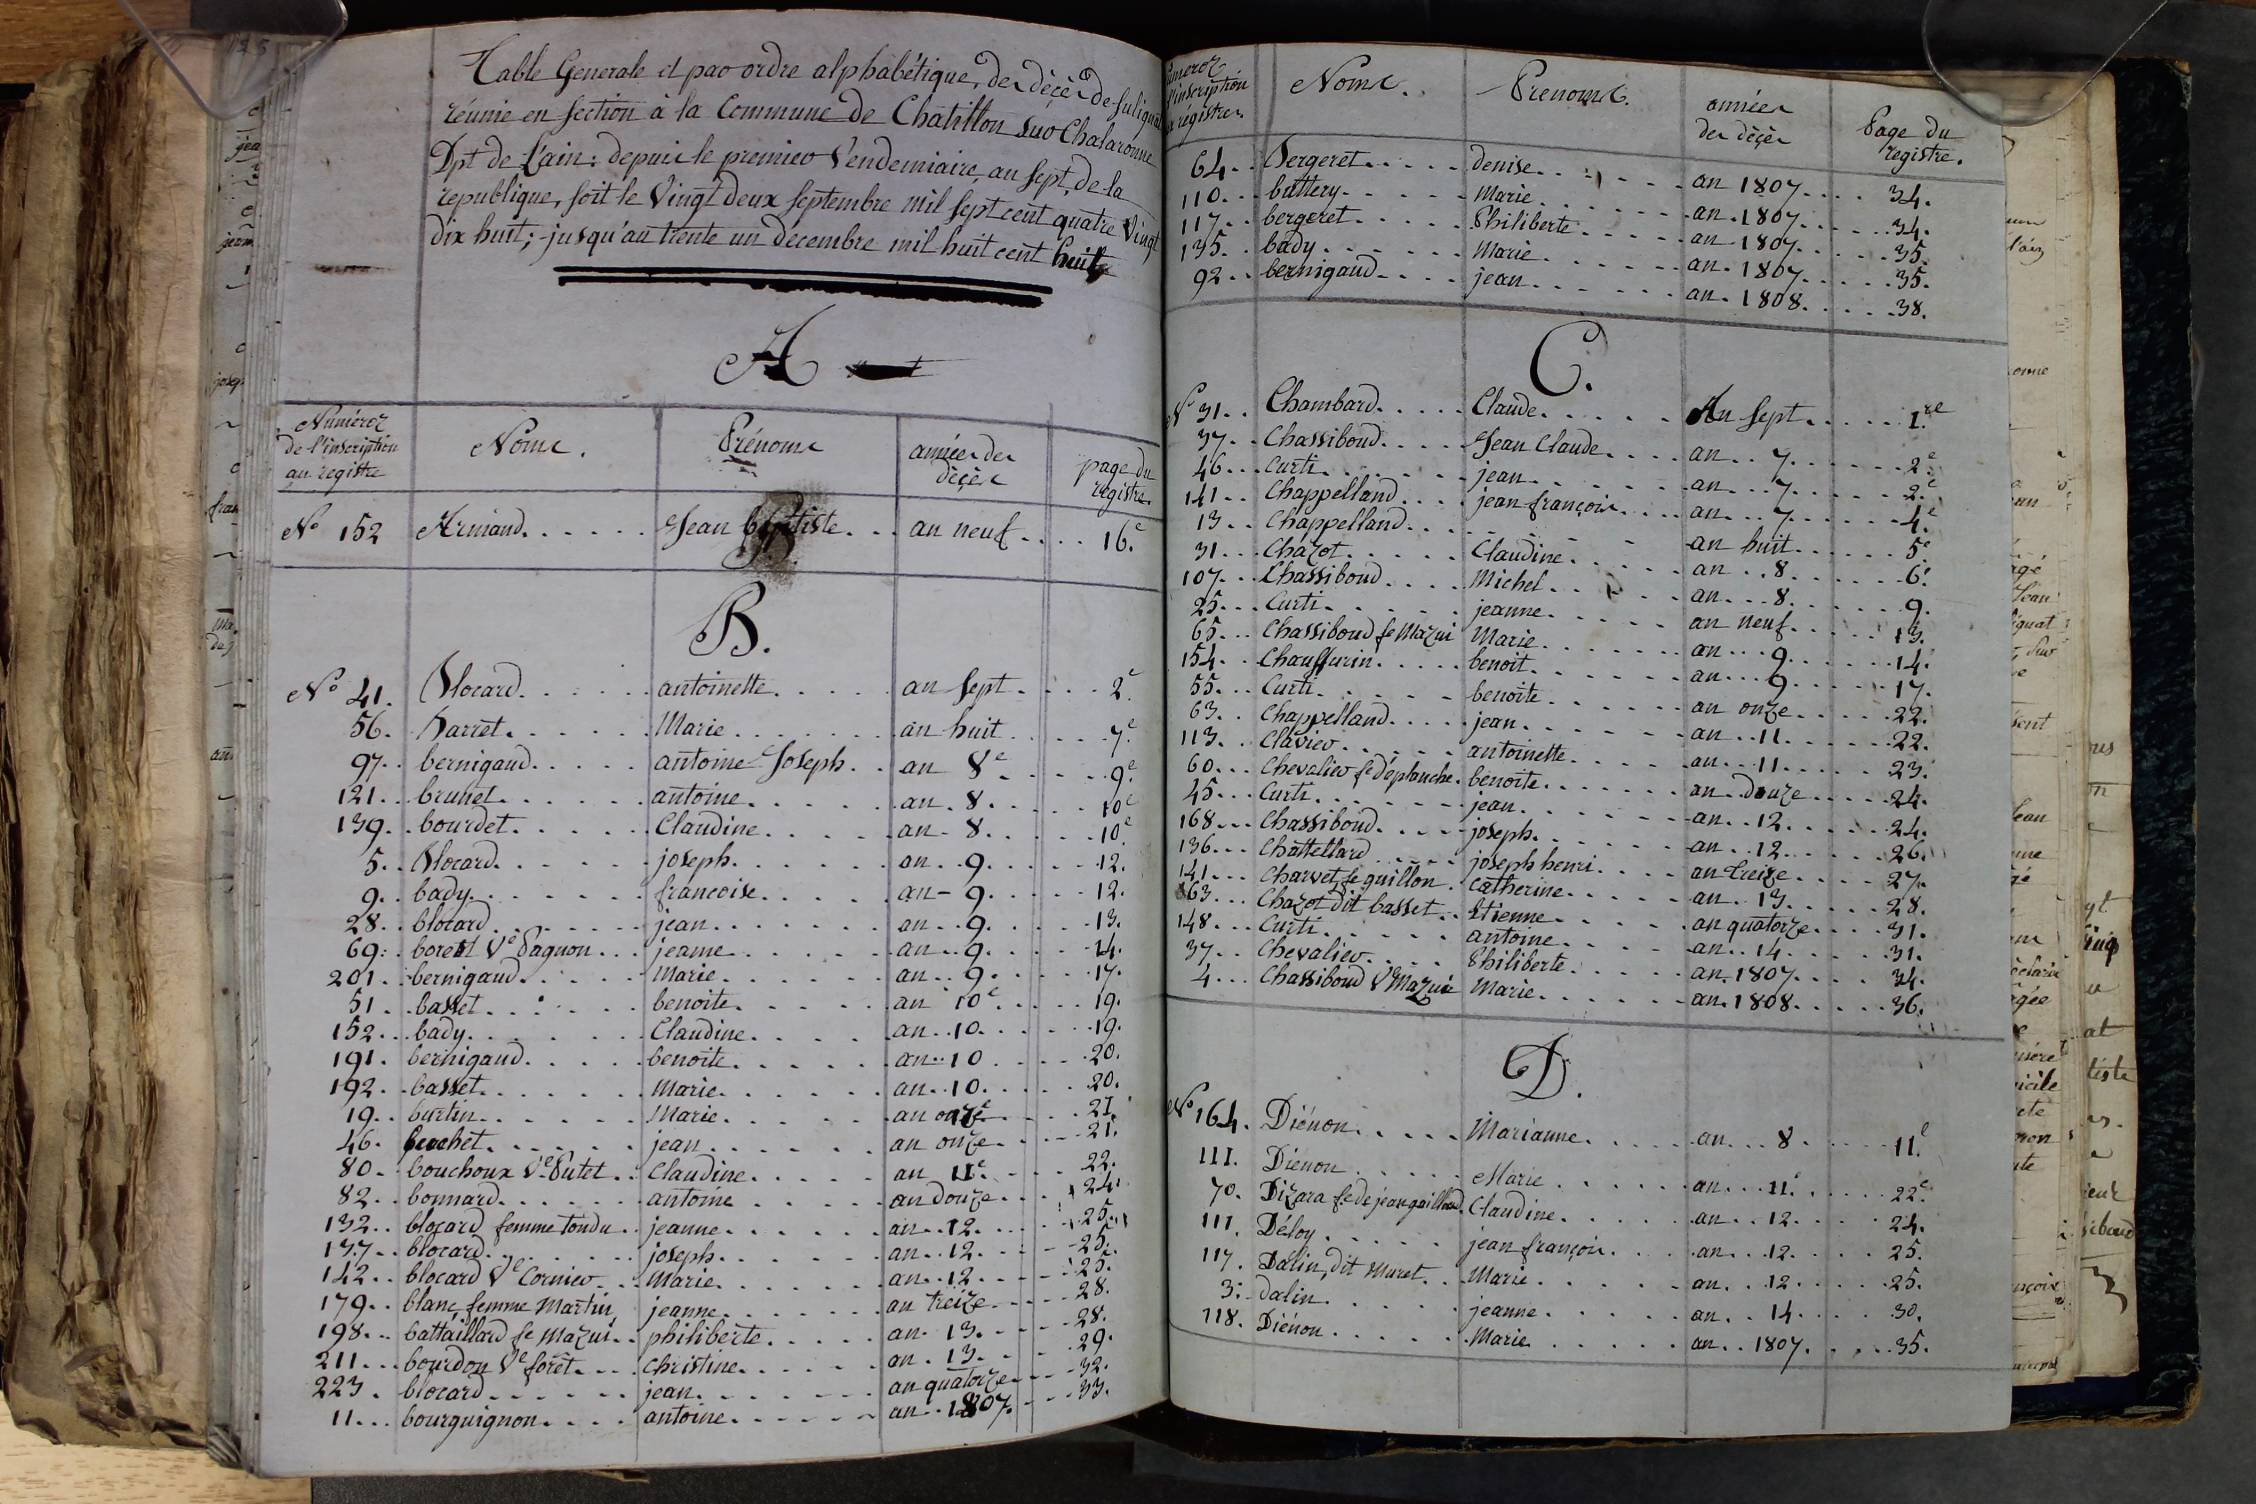 Table Generale et par ordre alphabétique, des décès de Sulignat
réunie en section à la Commune de Chatillon sur Chalaronne
Dpt de l'ain: depuis le premier Vendemiaire, an sept, de la
republique, soit le Vingt deux septembre mil sept cent quatre Vingt
dix huit; jusqu'au trente un décembre mil huit cent huit
A
Numéros de l'inscription au registre Noms. Prénoms années des décès page du registre.
No 152 Armand Jean baptiste an neuf 16e
B.
No 41. Blocard antoinette an sept 2e
56. Barret Marie an huit 7e
97. bernigaud antoine Joseph an 8e 9e
121. brunet antoine an 8. 10e
139. bourdet Claudine an 8. 10e
5. Blocard joseph an 9. 12.
9. bady francoise an 9. 12.
28. blocard jean an 9. 13.
69. borest Ve Pagnon jeanne an 9. 14.
201. bernigaud Marie an 9. 17.
51. basset benoite an 10e 19.
152. bady Claudine an 10. 19.
191. bernigaud benoite an 10 20.
192. basset Marie an 10. 20.
19. burtin Marie an onze 21.
46. jean an onze 21.
80. bouchoux Ve Putet Claudine an 11e 22.
82. bonnard antoine an douze 24.
132. blocard femme tondu jeanne an 12. 25.
137. blocard joseph an 12. 25.
142. blocard Ve Cornier Marie an 12. 25.
179. blanc femme Martin jeanne an treize 28.
198. battaillard fe Mazui philiberte an 13. 28.
211. bourdon Ve forêt christine an 13. 29.
223. blocard jean an quatorze 32.
11. bourguignon antoine an 1807. 33.
l'inscription registres Noms. Prenoms. années des décès Page du registre.
64. Bergeret denise an 1807 34.
110. buttery Marie an 1807 34.
117. bergeret Philiberte an 1807 35.
135. bady Marie an 1807 35.
92. bernigaud jean an 1808. 38.
C.
No 31. Chambard Claude An sept 1.re
37. Chassiboud Jean Claude an 7 2e
46. Curti jean an 7 2e
141. Chappelland jean françois an 7 4e
13. Chappelland an huit 5e
31. Chazot Claudine an 8 6e
107. Chassiboud Michel an 8 9.
25. Curti jeanne an neuf 13.
65. Chassiboud fe Mazui Marie an 9 14.
154. Chauffurin benoit an 9 17.
55. Curti benoite an onze 22.
63. Chappelland jean an 11 22.
113. Clavier antoinette an 11 23.
60. Chevalier fe déplanche benoite an douze 24.
45. Curti jean an 12 24.
168. Chassiboud joseph an 12 26.
136. Chattellard joseph henri an treize 27.
141. Charvet fe guillon catherine an 13 28.
163. Chazot dit basset Etienne an quatorze 31.
148. Curti antoine an 14 31.
37. Chevalier Philiberte an 1807 34.
4. Chassiboud Ve Mazui Marie an 1808 36.
D.
No 164. Diénon Marianne an 8 11e
111. Diénon Marie an 11e 22e
70. Dizara fe de jean gaillard Claudine an 12 24.
111. Déloy jean françois an 12 25.
117. Dalin, dit Muret Marie an 12 25.
3. dalin jeanne an 14 30.
118. Diénon Marie an 1807. 35.